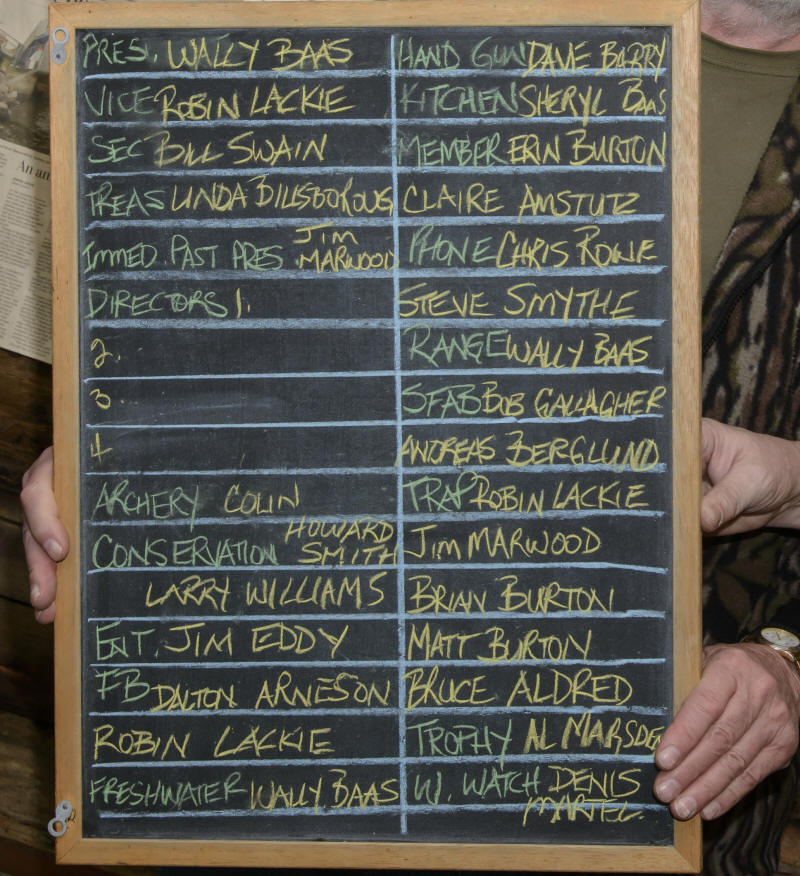 PRES. WALLY BAAS
VICE ROBIN LACKIE
SEC BILL SWAIN
TREAS LINDA BILLSBOROUG
IMMED. PAST PRES JIM
MARWOOD
DIRECTORS 1.
2.
3
4
ARCHERY COLIN
CONSERVATION HOWARD
SMITH
LARRY WILLIAMS
ENT. JIM EDDY
FB DALTON ARNESON
ROBIN LACKIE
FRESHWATER WALLY BAAS
HAND GUN DAVE BARRY
KITCHEN SHERYL BAAS
MEMBER ERIN BURTON
CLAIRE AMSTUTZ
PHONE CHRIS ROWE
STEVE SMYTHE
RANGE WALLY BAAS
SFAB BOB GALLAGHER
ANDREAS BERGLUND
TRAP ROBIN LACKIE
JIM MARWOOD
BRIAN BURTON
MATT BURTON
BRUCE ALDRED
TROPHY AL MARSDEN
W. WATCH DENIS
MARTEL.